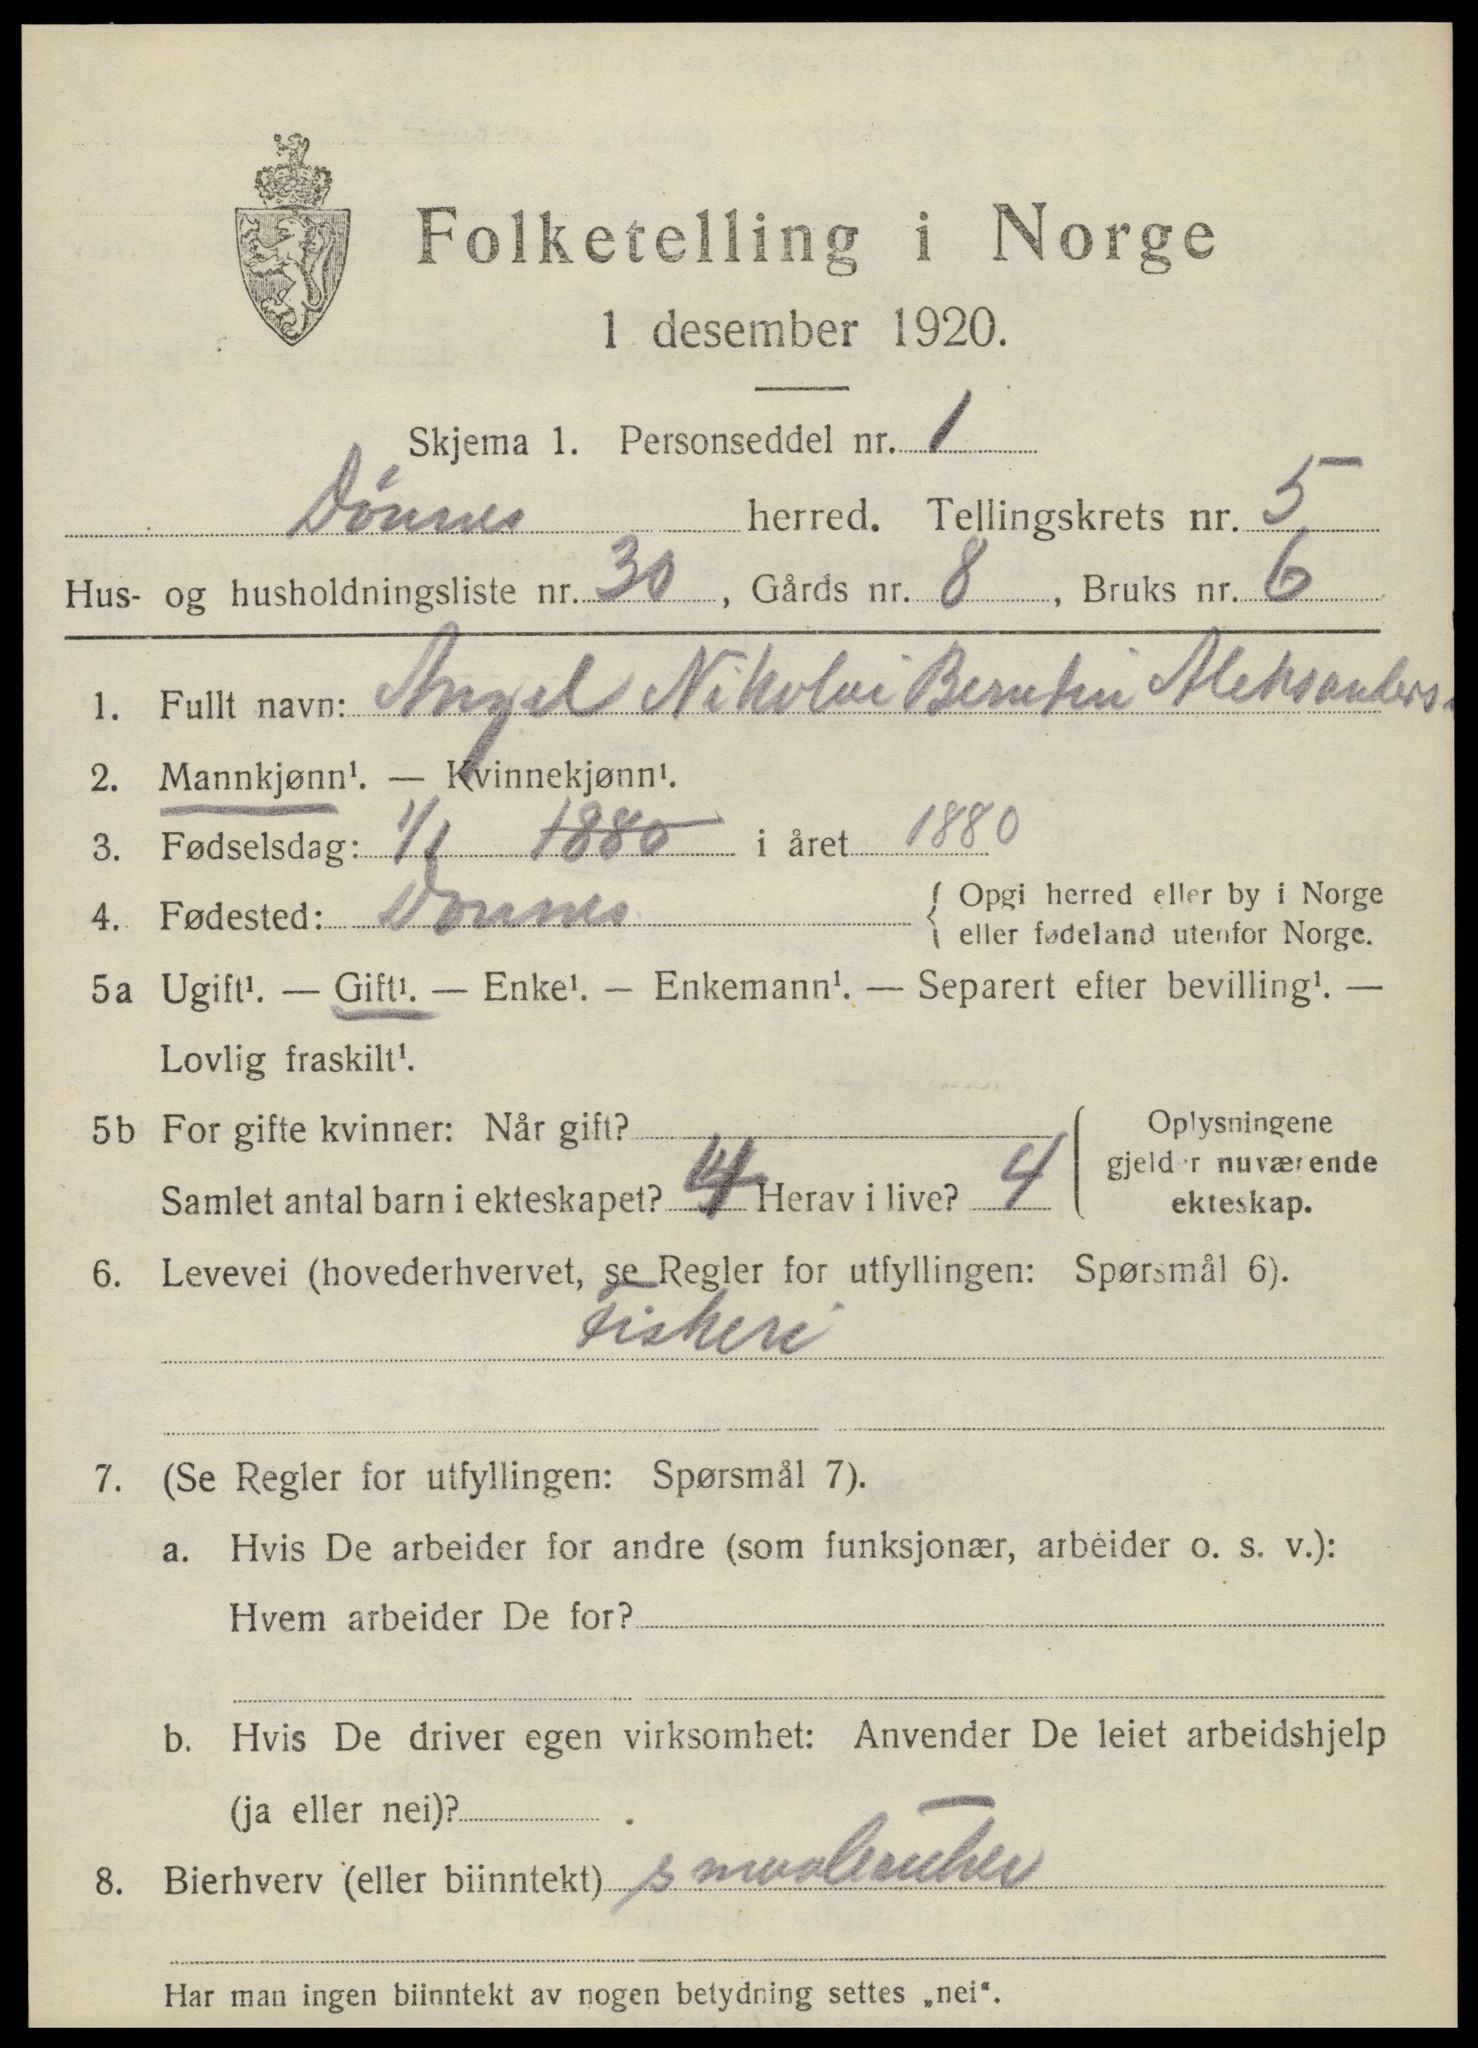 Folketelling i Norge
1 desember 1920.
Skjema 1. Personseddel nr. 1
Dönnes herred. Tellingskrets nr. 5
Hus- og husholdningsliste nr. 30, Gårds nr. 8, Bruks nr. 6
1. Fullt navn: Angel Nikolai Berntin Aleksanders.
2. Mannkjønn¹. — Kvinnekjønn¹.
3. Fødselsdag: 1/1 1880 i året 1880
4. Fødested: Dönnes { Opgi herred eller by i Norge
eller fødeland utenfor Norge.
5a Ugift¹. — Gift¹. — Enke¹. — Enkemann¹. — Separert efter bevilling¹. —
Lovlig fraskilt¹.
5b For gifte kvinner: Når gift?
Samlet antal barn i ekteskapet? 4 Herav i live? 4
Oplysningene
gjelder nuværende
ekteskap.
6. Levevei (hovederhvervet, se Regler for utfyllingen: Spørsmål 6).
Fiskeri
7. (Se Regler for utfyllingen: Spørsmål 7).
a. Hvis De arbeider for andre (som funksjonær, arbeider o. s. v.):
Hvem arbeider De for?
b. Hvis De driver egen virksomhet: Anvender De leiet arbeidshjelp
(ja eller nei)?
8. Bierhverv (eller biinntekt)
Har man ingen biinntekt av nogen betydning settes „nei“.